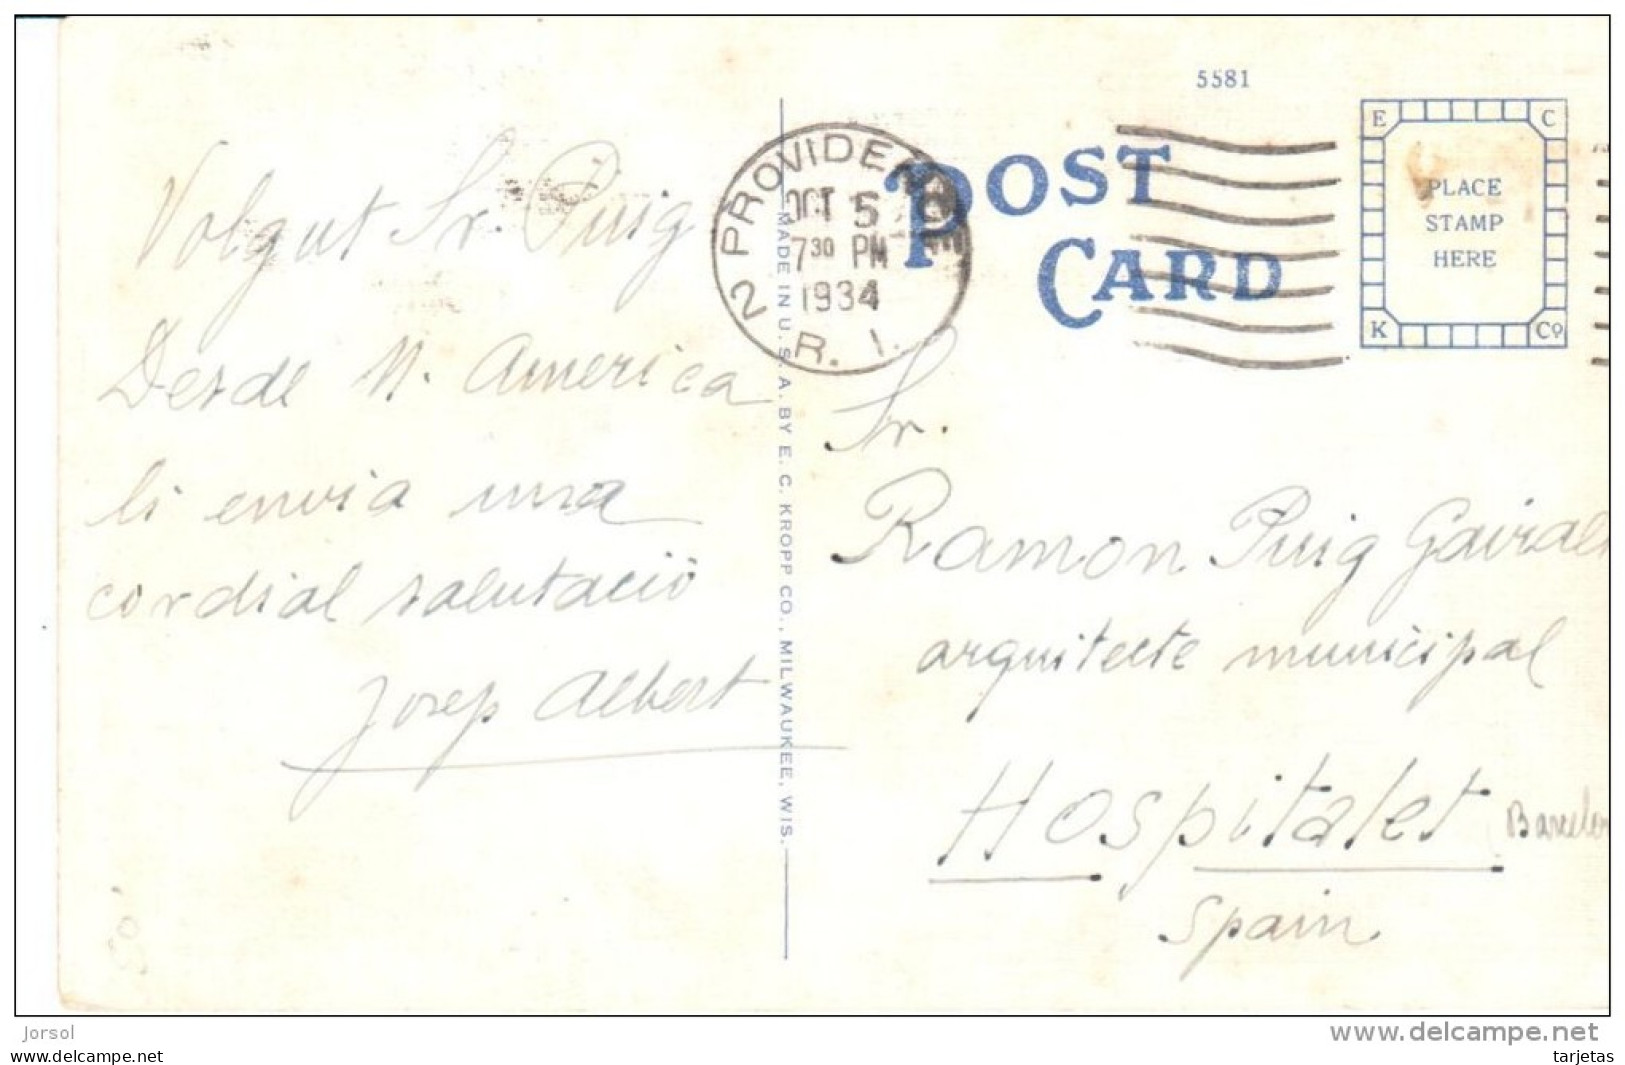 5581
POST
CARD
E C
PLACE
STAMP
HERE
K Cº
2 PROVIDEN
OCT 5
7 30 PM
1934
R. I.
MADE IN U. S. A. BY E. C. KROPP CO., MILWAUKEE, WIS.
Volgut Sr. Puig
Desde N. America
li envia una
cordial salutació
Josep Albert
Sr.
Ramon Puig Gairal
arquitecte municipal
Hospitalet (Barcelon
Spain
50
Jorsol
www.delcampe.net
www.todocoleccion.net
tarjetas